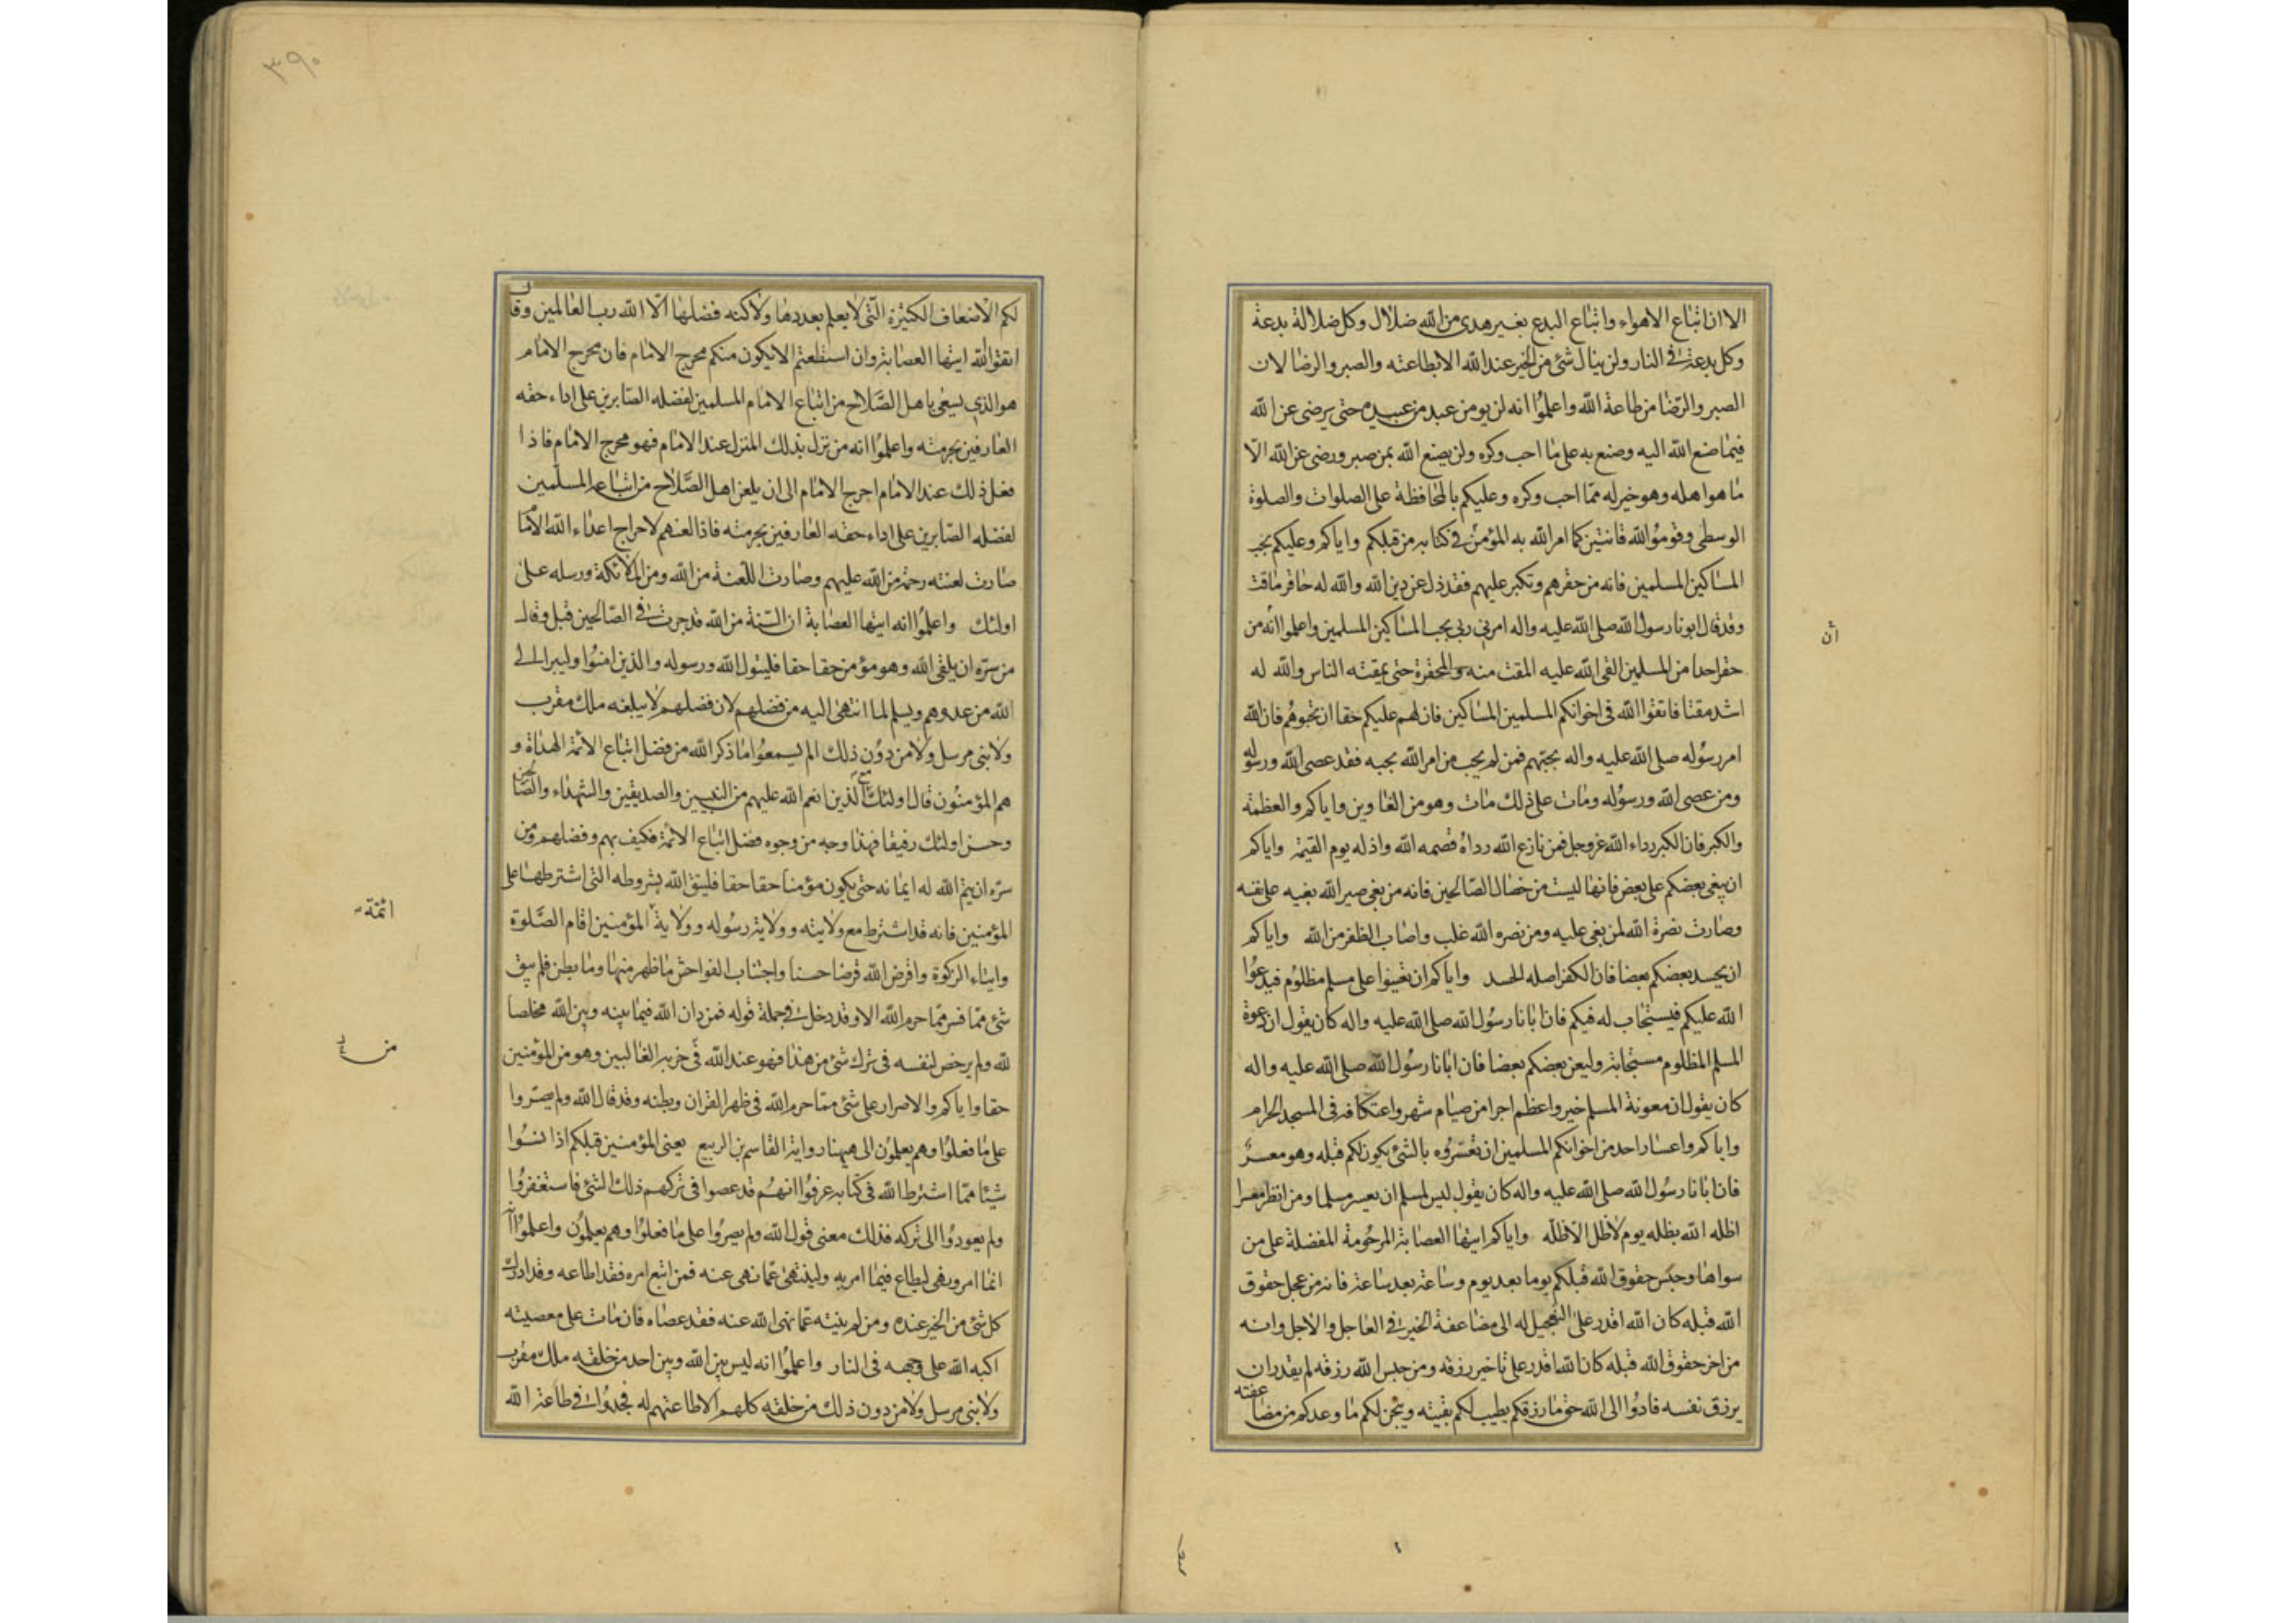 الا ان اتباع الاهواء واتباع البدع بغير هدى من الله ضلال وكل ضلالة بدعة
وكل بدعة في النار ولن ينال شئ من الخير عند الله الا بطاعته والصبر والرضا لان
الصبر والرضا من طاعة الله واعلموا انه لن يومن عبد من عبيده حتى يرضى عن الله
فيما صنع الله اليه وصنع به على ما احب وكره ولن يصنع الله بمن صبر ورضى عن الله الا
ما هو اهله وهو خير له مما احب وكره وعليكم بالمحافظة على الصلوات والصلوة
الوسطى وقوموا لله قانتين كما امر الله به المؤمنين في كتابه من قبلكم واياكم وعليكم بحب
المساكين المسلمين فانه من حقرهم وتكبر عليهم فقد زل عن دين الله والله له حاقر ماقت
وقد قال ابونا رسول الله صلى الله عليه واله امرني ربي بحب المساكين المسلمين واعلموا انه من
حقر احدا من المسلمين القى الله عليه المقت منه والمحقرة حتى يمقته الناس والله له
اشد مقتا فاتقوا الله في اخوانكم المسلمين المساكين فان لهم عليكم حقا ان تحبوهم فان الله
امر رسوله صلى الله عليه واله بحبهم فمن لم يحب من امر الله بحبه فقد عصى الله ورسوله
ومن عصى الله ورسوله ومات على ذلك مات وهو من الغاوين واياكم والعظمة
والكبر فان الكبر رداء الله عز وجل فمن نازع الله رداه قصمه الله واذله يوم القيمة واياكم
ان يبغى بعضكم على بعض فانها ليست من خصال الصالحين فانه من بغى صير الله بغيه على نفسه
وصارت نصرة الله لمن بغى عليه ومن نصره الله غلب واصاب الظفر من الله واياكم
ان يحسد بعضكم بعضا فان الكفر اصله الحسد واياكم ان تعينوا على مسلم مظلوم فيدعوا
الله عليكم فيستجاب له فيكم فان ابانا رسول الله صلى الله عليه واله كان يقول ان دعوة
المسلم المظلوم مستجابة وليعن بعضكم بعضا فان ابانا رسول الله صلى الله عليه واله
كان يقول ان معونة المسلم خير واعظم اجرا من صيام شهر واعتكافه في المسجد الحرام
واياكم واعسار احد من اخوانكم المسلمين ان تعسروه بالشئ يكون لكم قبله وهو معسر
فان ابانا رسول الله صلى الله عليه واله كان يقول ليس لمسلم ان يعسر مسلما ومن انظر معسرا
اظله الله بظله يوم لا ظل الا ظله واياكم ايتها العصابة المرحومة المفضلة على من
سواها وحبس حقوق الله قبلكم يوما بعد يوم وساعة بعد ساعة فانه من عجل حقوق
الله قبله كان الله اقدر على التعجيل له الى مضاعفة الخير في العاجل والاجل وانه
من اخر حقوق الله قبله كان الله اقدر على تاخير رزقه ومن حبس الله رزقه لم يقدر ان
يرزق نفسه فادوا الى الله حق ما رزقكم يطيب لكم بقيته وينجز لكم ما وعدكم من مضاعفته
ان
٣٩٠
لكم الاضعاف الكثيرة التي لا يعلم بعددها ولا كنه فضلها الا الله رب العالمين وقال
اتقوا الله ايتها العصابة وان استطعتم الا يكون منكم محرج الامام فان محرج الامام
هو الذي يسعى باهل الصلاح من اتباع الامام المسلمين لفضله الصابرين على اداء حقه
العارفين بحرمته واعلموا انه من نزل بذلك المنزل عند الامام فهو محرج الامام فاذا
فعل ذلك عند الامام احرج الامام الى ان يلعن اهل الصلاح من اتباعه المسلمين
لفضله الصابرين على اداء حقه العارفين بحرمته فاذا لعنهم لاحراج اعداء الله الامام
صارت لعنته رحمة من الله عليهم وصارت اللعنة من الله ومن الملائكة ورسله على
اولئك واعلموا انه ايتها العصابة ان السنة من الله قد جرت في الصالحين قبل وقال
من سره ان يلقى الله وهو مؤمن حقا حقا فليتول الله ورسوله والذين امنوا وليبرا الى
الله من عدوهم ويسلم لما انتهى اليه من فضلهم لان فضلهم لا يبلغه ملك مقرب
ولا نبي مرسل ولا من دون ذلك الم يسمعوا ما ذكر الله من فضل اتباع الائمة الهداة و
هم المؤمنون قال اولئك مع الذين انعم الله عليهم من النبيين والصديقين والشهداء والصالحين
وحسن اولئك رفيقا فهذا وجه من وجوه فضل اتباع الائمة فكيف بهم وفضلهم ومن
سره ان يتم الله له ايمانه حتى يكون مؤمنا حقا حقا فليتق الله بشروطه التي اشترطها على
المؤمنين فانه قد اشترط مع ولايته وولاية رسوله وولاية المؤمنين اقام الصلوة
وايتاء الزكوة واقرض الله قرضا حسنا واجتناب الفواحش ما ظهر منها وما بطن فلم يبق
شئ مما فسر مما حرم الله الا وقد دخل في جملة قوله فمن دان الله فيما بينه وبين الله مخلصا
لله ولم يرخص لنفسه في ترك شئ من هذا فهو عند الله في حزبه الغالبين وهو من المؤمنين
حقا واياكم والاصرار على شئ مما حرم الله في ظهر القران وبطنه وقد قال الله ولم يصروا
على ما فعلوا وهم يعلمون الى هيهنا رواية القاسم بن الربيع يعنى المؤمنين قبلكم اذا نسوا
شيئا مما اشترط الله في كتابه عرفوا انهم قد عصوا في تركهم ذلك الشئ فاستغفروا
ولم يعودوا الى تركه فذلك معنى قول الله ولم يصروا على ما فعلوا وهم يعلمون واعلموا انه
انما امر ونهى ليطاع فيما امر به ولينتهى عما نهى عنه فمن اتبع امره فقد اطاعه وقد ادرك
كل شئ من الخير عنده ومن لم ينته عما نهى الله عنه فقد عصاه فان مات على معصيته
اكبه الله على وجهه في النار واعلموا انه ليس بين الله وبين احد من خلقه ملك مقرب
ولا نبي مرسل ولا من دون ذلك من خلقه كلهم الا طاعتهم له فجدوا في طاعة الله
ائمة
من